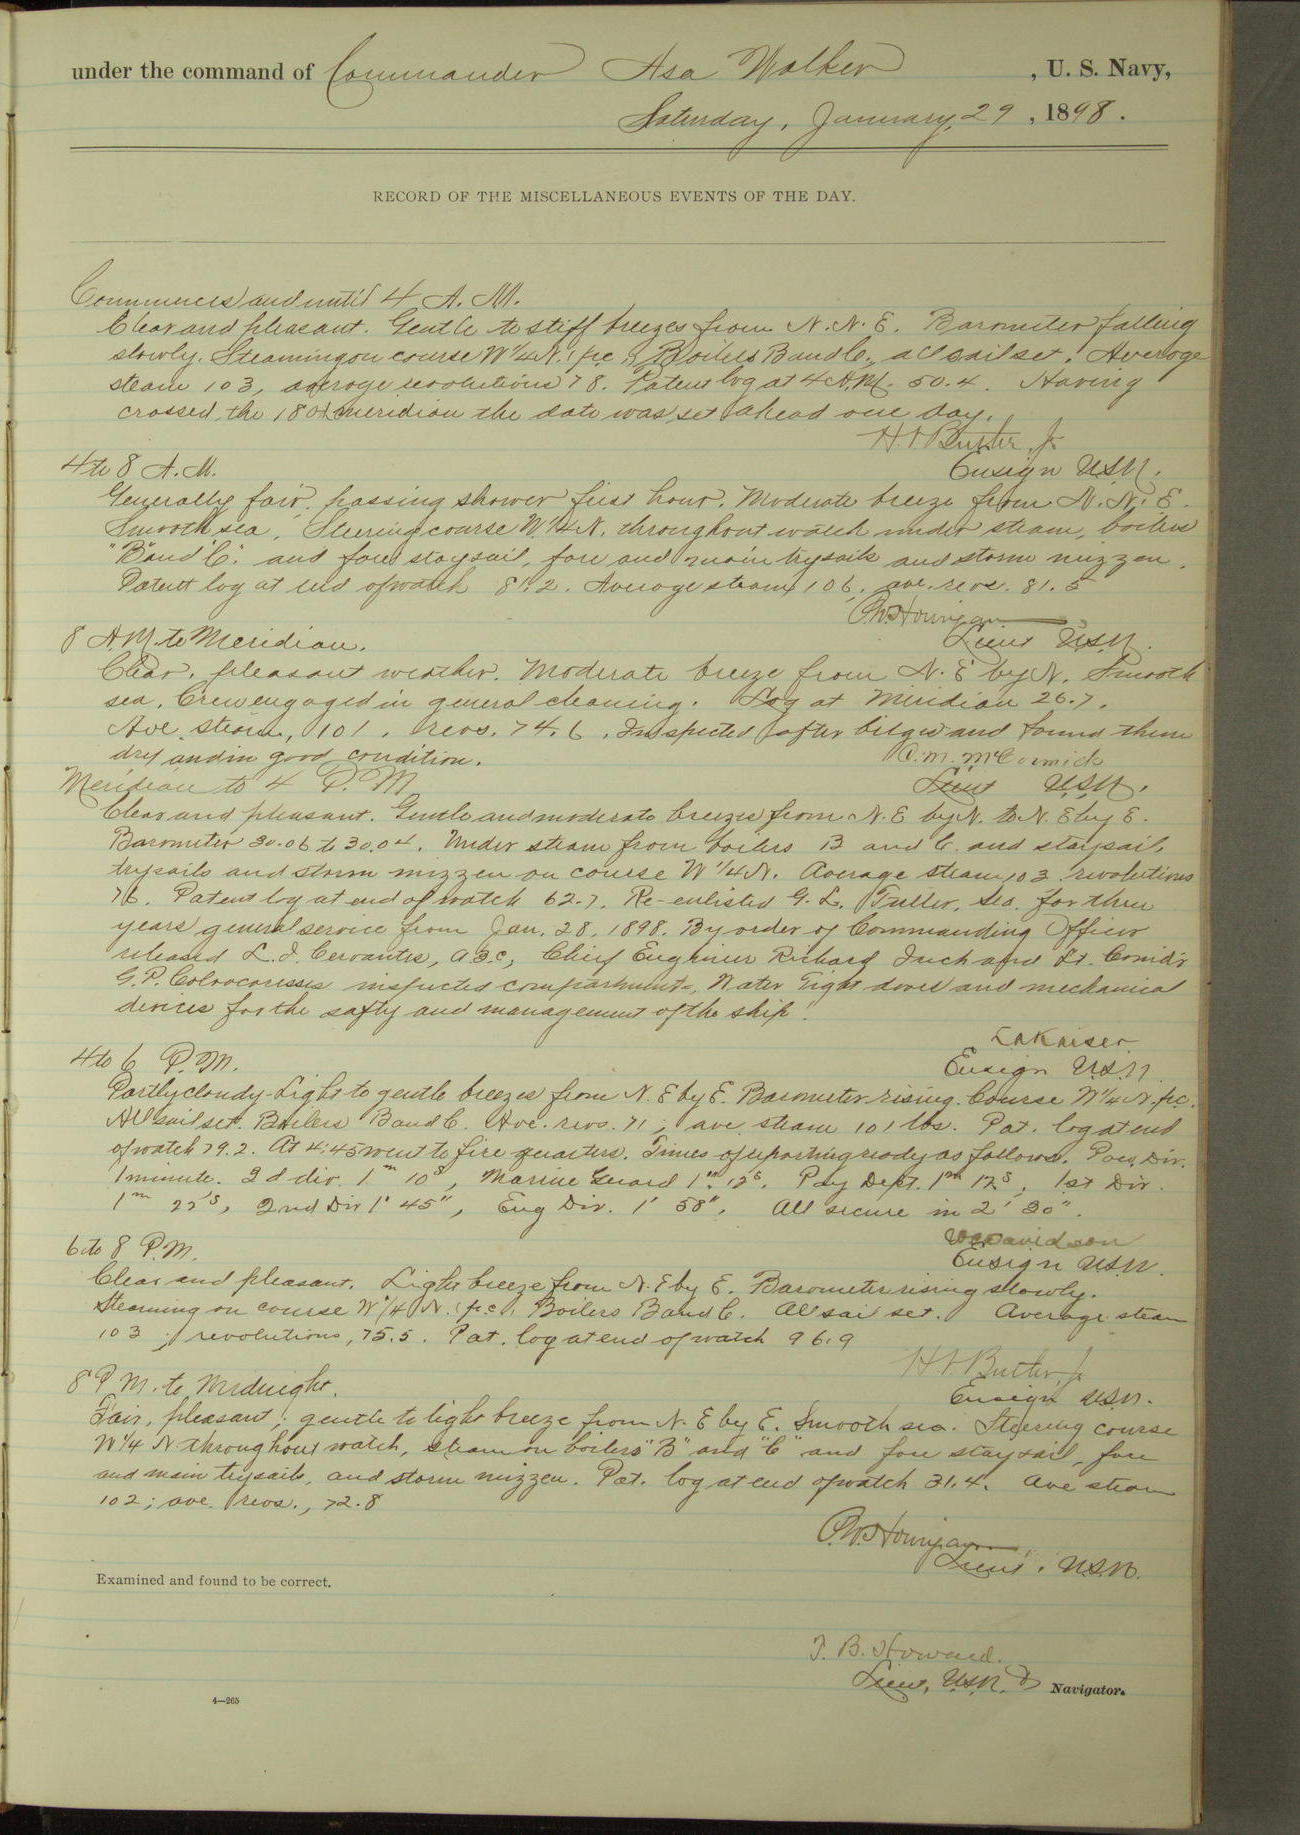 under the command of Commander Asa Walker , U. S. Navy,
Saturday, January, 29 , 1898 .
RECORD OF THE MISCELLANEOUS EVENTS OF THE DAY.
Commences and until 4 A. M.
Clear and pleasant. Gentle to stiff breezes from N. N. E. Barometer falling
slowly. Steaming on course W 1/4 N. (p.c.), Boilers B and C., all sail set. Average
steam 103, average revolutions 78. Patent log at 4 A.M. 50.4. Having
crossed the 180th meridian the date was set ahead one day.
H. I. Butler, Jr
Ensign U.S.N.
4 to 8 A. M.
Generally fair, passing shower first hour. Moderate breeze from N. N. E.
Smooth sea. Steering course W. 1/4 N. throughout watch under steam, boilers
"B and C" and fore staysail, fore and main trysails and storm mizzen.
Patent log at end of watch 81.2. Average steam 106, ave. revs. 81.5
P.W. Hourigan
Lieut U.S.N.
8 A.M. to Meridian.
Clear, pleasant weather. Moderate breeze from N. E by N. Smooth
sea. Crew engaged in general cleaning. Log at Meridian 26.7.
Ave. steam, 101. revs. 74.6. Inspected after bilges and found them
dry and in good condition.
C. M. McCormick
Lieut U.S.N.
Meridian to 4 P. M
Clear and pleasant. Gentle and moderate breezes from N. E by N. to N. E by E.
Barometer 30.06 to 30.04. Under steam from boilers B and C. and staysail,
trysails and storm mizzen on course W 1/4 N. Average steam 103 revolutions
76. Patent log at end of watch 62.7. Re-enlisted G. L. Fuller, Sea. for three
years general service from Jan. 28, 1898. By order of Commanding Officer
released L. J. Cervantes, A.B.C, Chief Engineer Richard Inch and Lt. Comdr
G. P. Colvocoresses inspected compartments, Water Tight doors and mechanical
devices for the safty and management of the ship.
L A Kaiser
Ensign U.S.N.
4 to 6 P.M.
Partly cloudy. Light to gentle breezes from N. E by E. Barometer rising. Course W 1/4 N. p.c.
All sail set. Boilers B and C. Ave. revs. 71, ave. steam 101 lbs. Pat. log at end
of watch 79.2. At 4:45 went to fire quarters. Times of reporting ready as follows. Pow. Div.
1 minute. 3d div. 1m 10s, Marine Guard 1m 12s. Pay Dept. 1m 17s, 1st Div.
1m 22s, 2nd Div 1' 45", Eng Div. 1' 58". All secure in 2' 30".
W C Davidson
Ensign U.S.N.
6 to 8 P.M.
Clear and pleasant. Light breeze from N. E by E. Barometer rising slowly.
Steaming on course W 1/4 N. (p.c.), Boilers B and C. All sail set. Average steam
103; revolutions, 75.5. Pat. log at end of watch 96.9
H. I. Butler, Jr
Ensign U.S.N.
8 P M. to Midnight.
Fair, pleasant; gentle to light breeze from N. E by E. Smooth sea. Steering course
W 1/4 N throughout watch, steam on boilers "B" and "C" and fore staysail, fore
and main trysails, and storm mizzen. Pat. log at end of watch 31.4. Ave steam
102; ave. revs., 72.8
P.W. Hourigan
Lieut. U.S.N.
Examined and found to be correct.
T. B. Howard.
Lieut, U.S.N. Navigator.
4—265